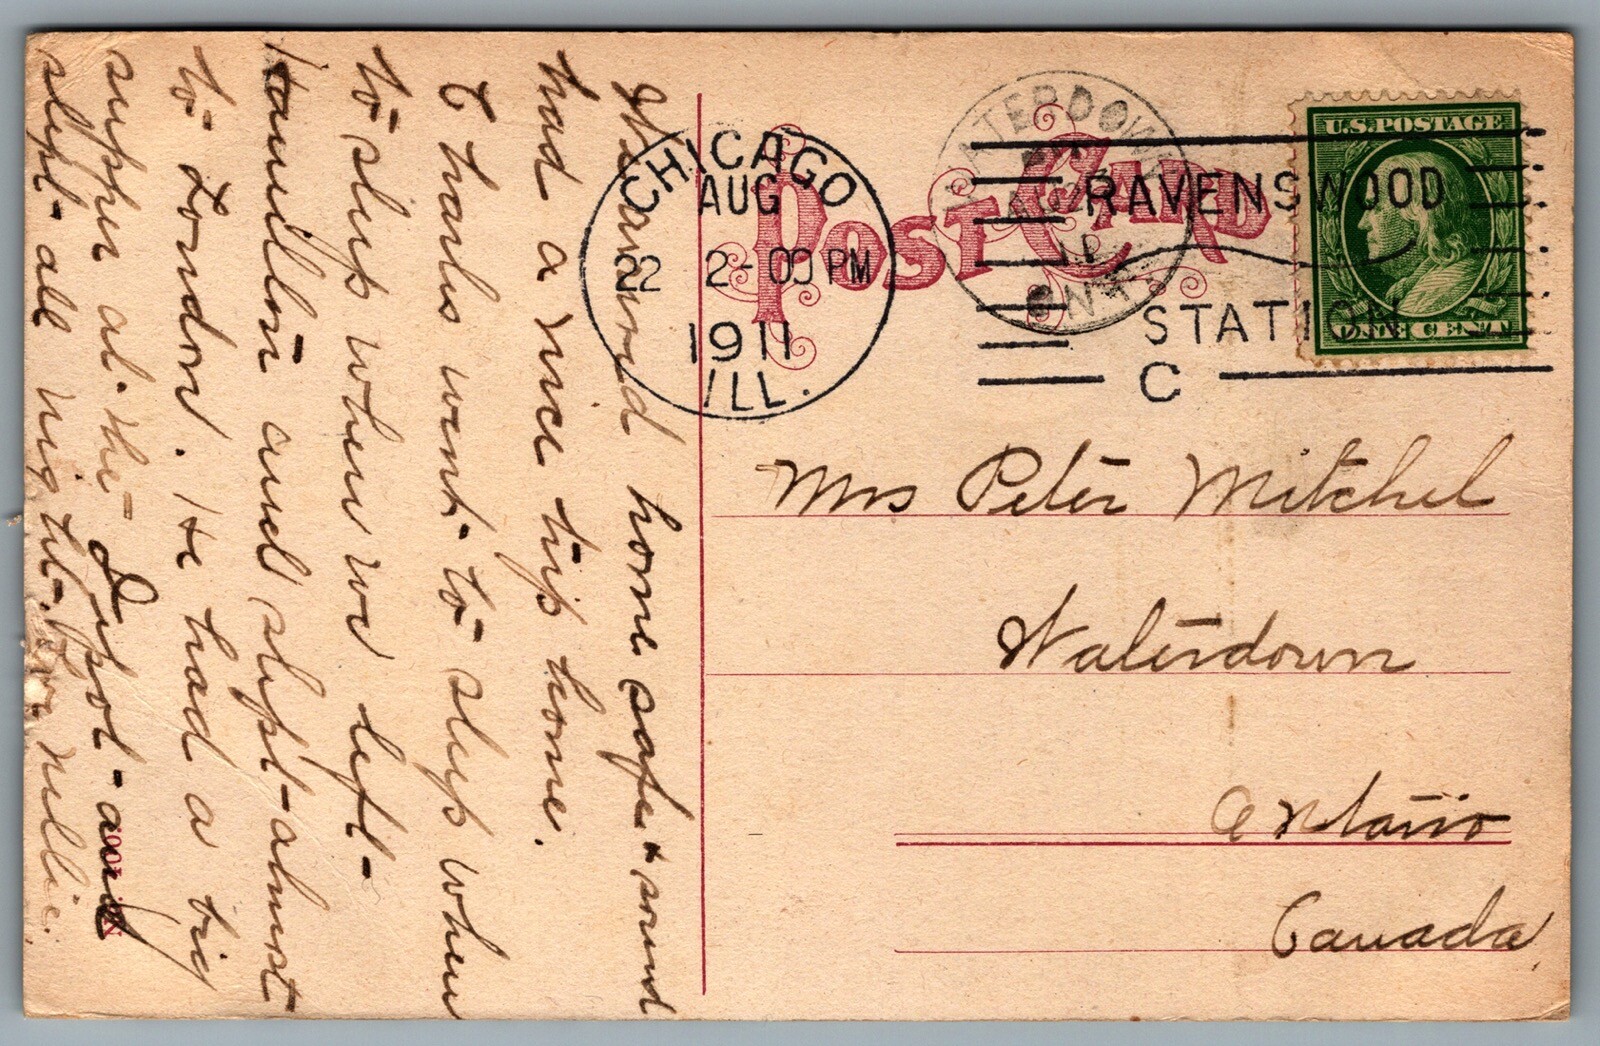 Arrived home safe + sound
had a nice trip home.
Charls went to sleep when
to sleep when we left
Hamilton and slept almost
to London. He had a big
supper at the Depot and
slept all night. from Nellie.
POST CARD
CHICAGO
AUG
22 2-00 PM
1911
ILL.
WATERDOWN
ONT
RAVENSWOOD
STATION
C
U.S. POSTAGE
ONE CENT
Mrs Peter Mitchel
Waterdown
Ontario
Canada